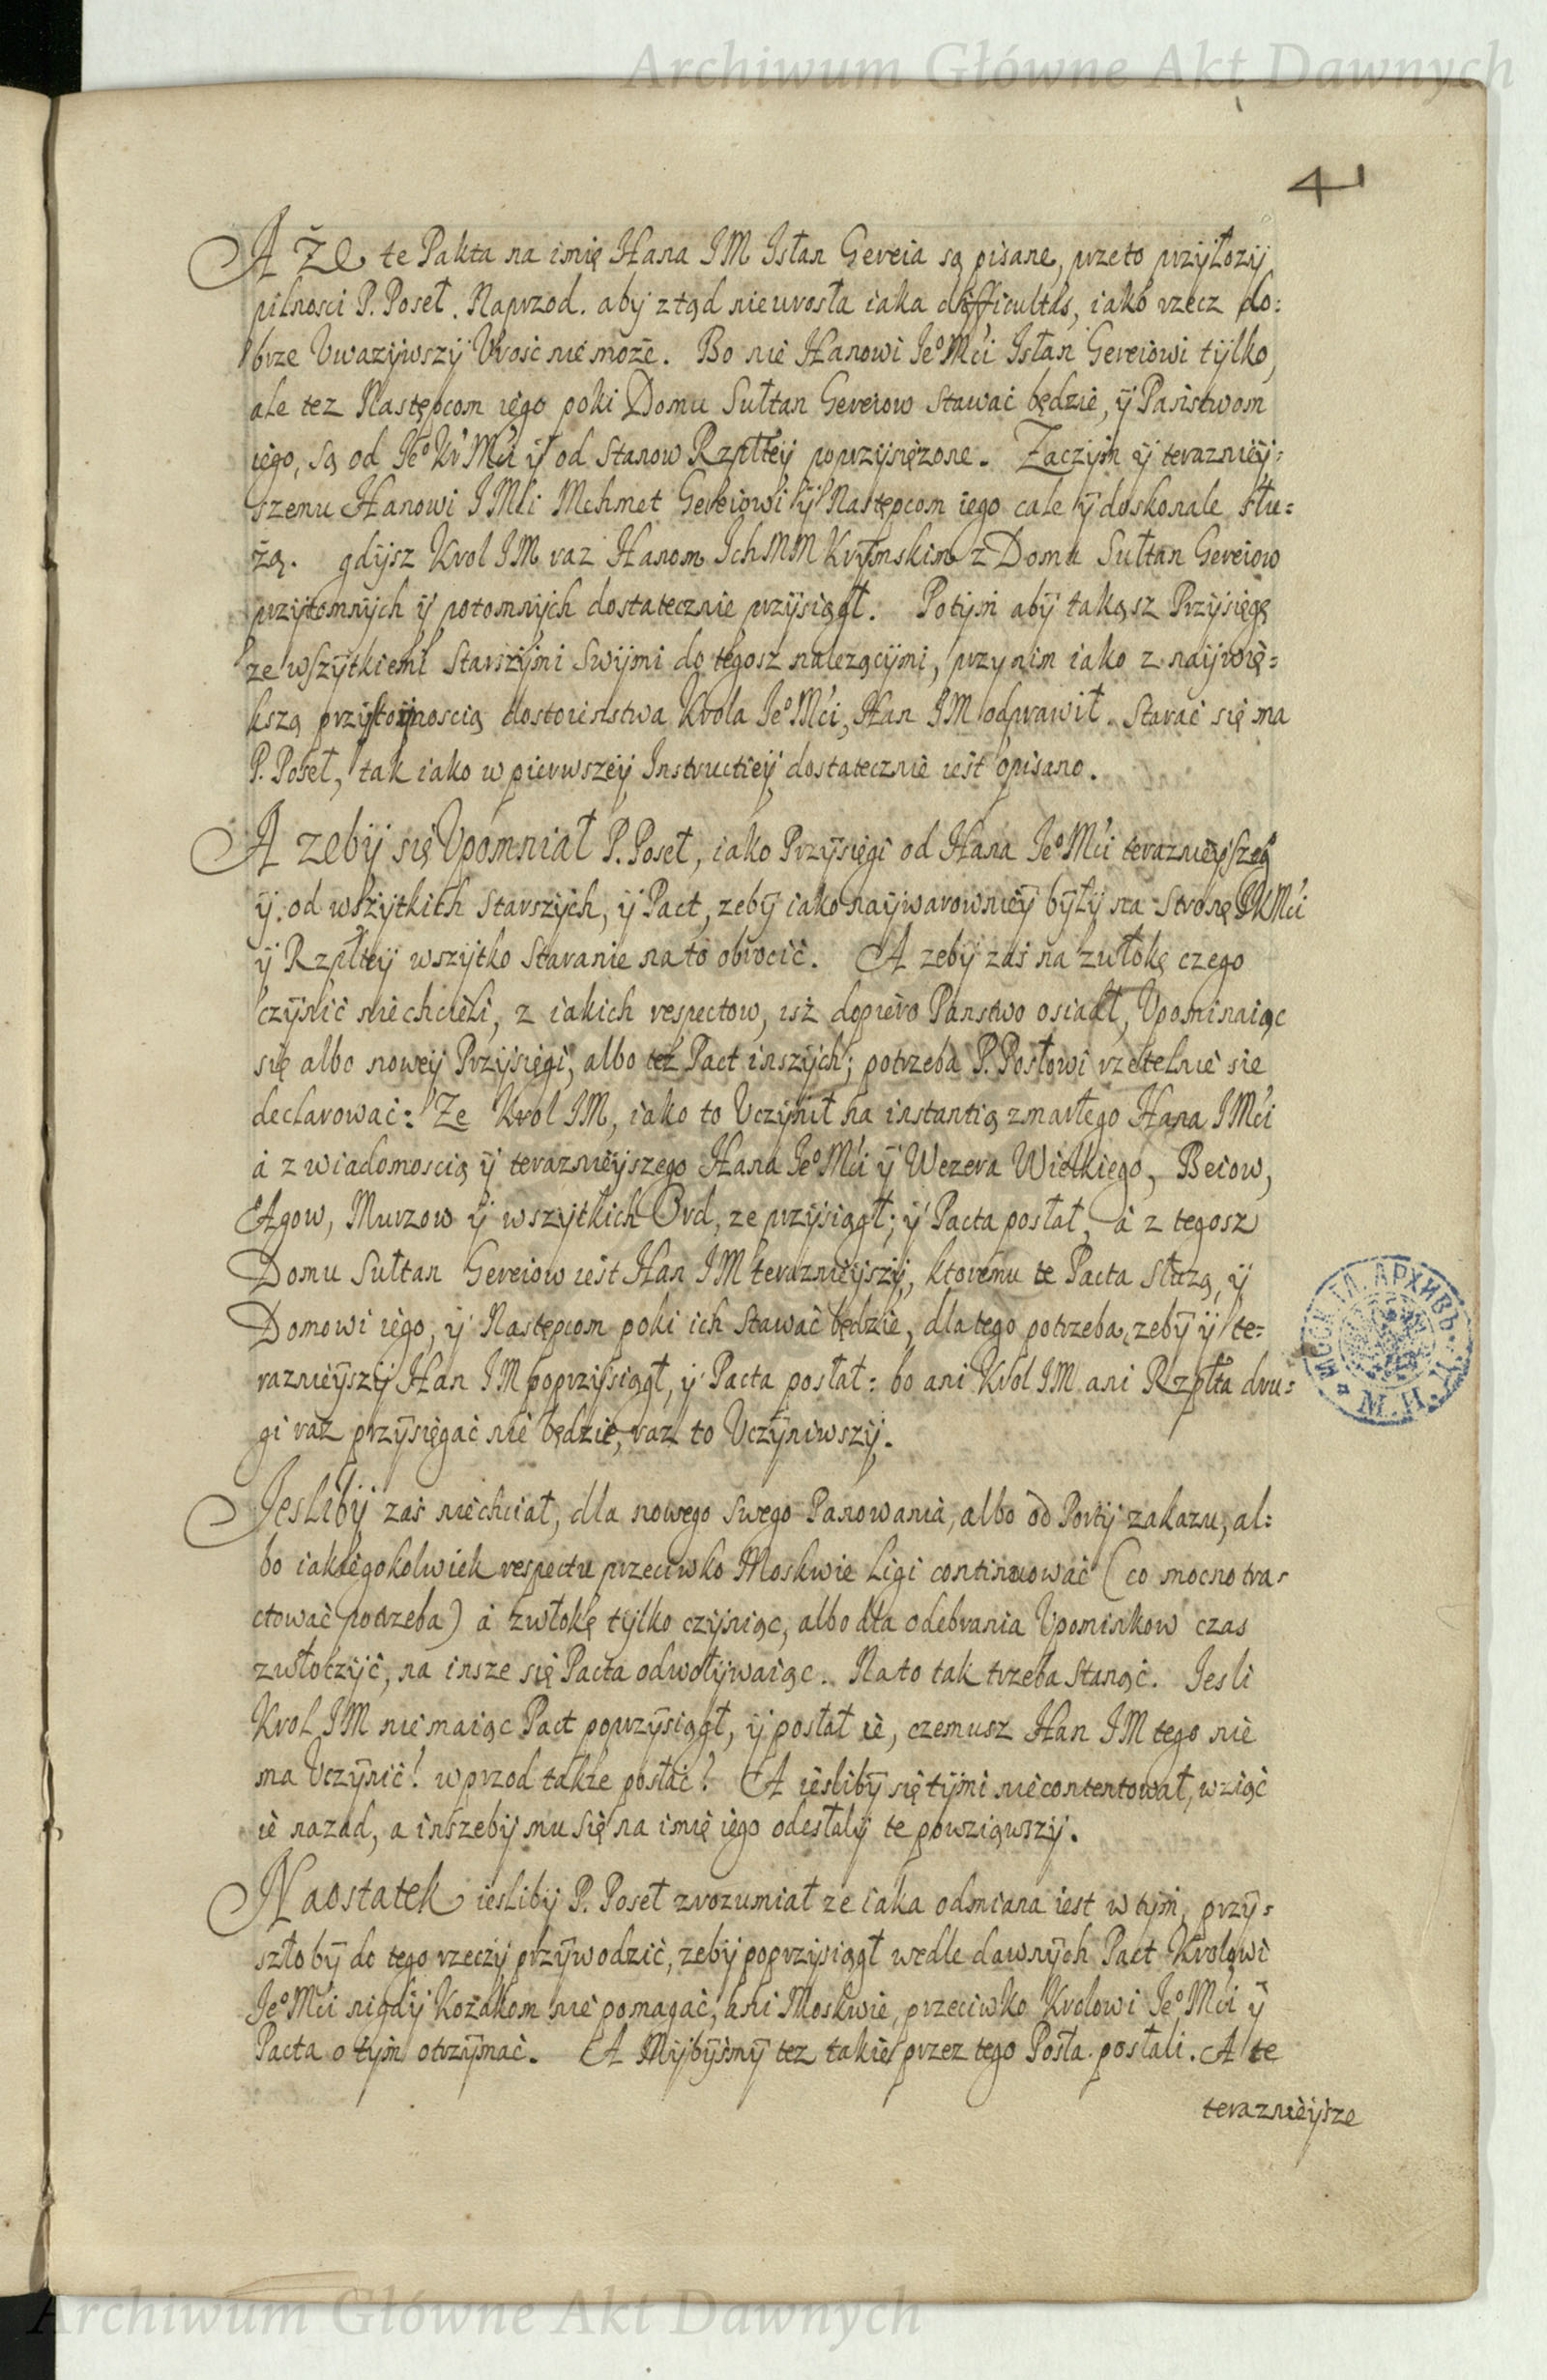 Archiwum Główne Akt Dawnych
41
A Że te Pakta na imię Hana IM Isłan Gereia są pisane, przeto przyłozy
pilnosci P. Poseł. Naprzod. aby ztąd nieurosła iaka difficultas, iako rzecz do:
brze Uwazywszy Urość nie może. Bo nie Hanowi Jeº Mći Isłan Gereiowi tylko,
ale tez Następcom iego poki Domu Sułtan Gereiow stawać będzie, y Państwom
iego, są od Jeº Kr Mći y od Stanow Rzpltey poprzysiężone. Zaczym y terazniey:
szemu Hanowi IMći Mehmet Gereiowi y Następcom iego cale y doskonale słu:
żą. gdysz Krol IM raz Hanom Ich MM Krymskim z Domu Sułtan Gereiow
przytomnych y potomnych dostatecznie przysiągł. Potym aby takąsz Przysięgę
ze wszytkiemi Starszymi Swymi do tegosz nalezącymi, przy nim iako z naywię:
kszą przystoynoscią dostoieństwa Krola Jeº Mći, Han IM odprawił. Starać się ma
P. Poseł, tak iako w pierwszey Instructiey dostatecznie iest opisano.
A zeby się Upomniał P. Poseł, iako Przysięgi od Hana Jeº Mći teraznieyszeg
y. od wszytkich Starszych, y Pact, zeby iako naywarowniey były na Stronę JKMći
y Rzpltey wszytko Staranie na to obrocić. A zeby zaś na zwłokę czego
czynić niechcieli, z iakich respectow, isz dopiero Panstwo osiadł, Upominaiąc
się albo nowey Przysięgi, albo też Pact inszych; potrzeba P. Posłowi rzetelnie sie
declarować: Ze Krol IM, iako to Uczynił na instantią zmarłego Hana IMći
á z wiadomoscią y teraznieyszego Hana Jeº Mći y Wezera Wielkiego, Beiow,
Agow, Murzow y wszytkich Ord, ze przysiągł; y Pacta posłał, á z tegosz
Domu Sułtan Gereiow iest Han IM teraznieyszy, ktoremu te Pacta Słuzą, y
Domowi iego, y Następcom poki ich Stawać będzie, dla tego potrzeba, zeby y te:
raznieyszy Han IM poprzysiągł, y Pacta posłał: bo ani Krol IM ani Rzplta dru:
gi raz przysięgać nie będzie, raz to Uczyniwszy.
Jesliby zaś niechciał, dla nowego Swego Panowania, albo od Porty zakazu, al:
bo iakiegokolwiek respectu przeciwko Moskwie Ligi continuować (co mocno tra:
ctować potrzeba) á zwłokę tylko czyniąc, albo dla odebrania Upominkow czas
zwłoczyć, na insze się Pacta odwoływaiąc. Na to tak trzeba Stanąć. Iesli
Krol IM nie maiąc Pact poprzysiągł, y posłał ie, czemusz Han IM tego nie
ma Uczynić? wprzod także posłać? A iesliby się tymi niecontentował, wziąć
ie nazad, a inszeby mu się na imię iego odesłały te powziąwszy.
Naostatek iesliby P. Poseł zrozumiał ze iaka odmiana iest w tym, przy:
szłoby do tego rzeczy przywodzić, zeby poprzysiągł wedle dawnych Pact Krolowi
Jeº Mći nigdy Kozakom nie pomagać, ani Moskwie, przeciwko Krolowi Jeº Mći y
Pacta o tym otrzymać. A Mybyśmy tez takie przez tego Posła posłali. A te
teraznieysze
МОСК. ГЛ. АРХИВЪ. М.И.Д.
Archiwum Główne Akt Dawnych